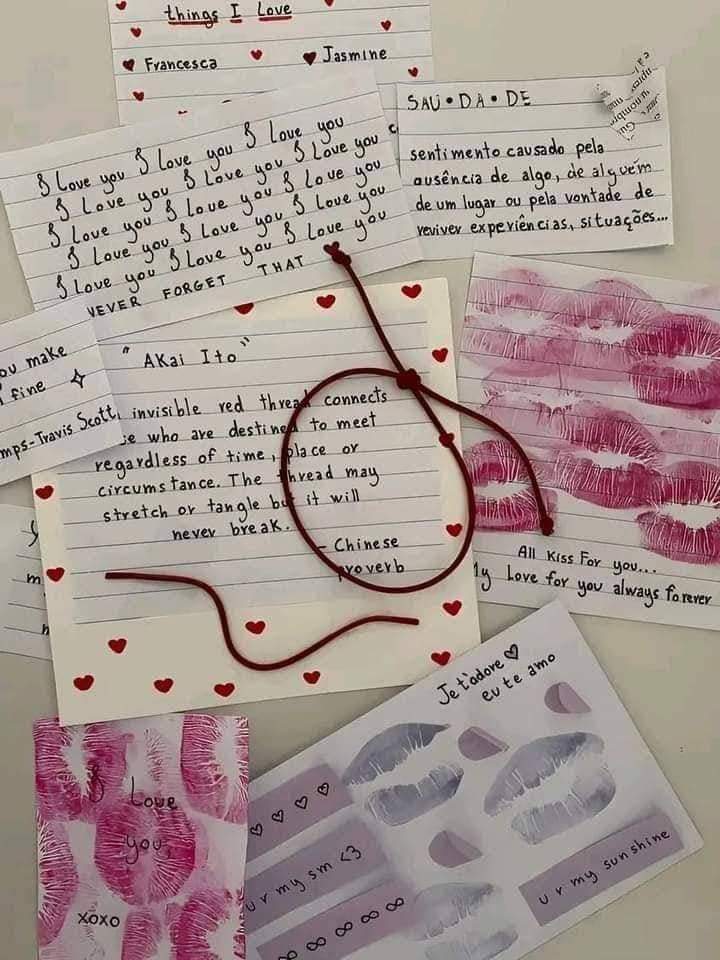 things I Love
Francesca
Jasmine
SAU•DA•DE
sentimento causado pela
ausência de algo, de alguém
de um lugar ou pela vontade de
reviver experiências, situações...
I Love you I Love you I Love you
I Love you I Love you I Love you
I Love you I Love you I Love you
I Love you I Love you I Love you
I Love you I Love you I Love you
NEVER FORGET THAT
make
fine
-Travis Scott
"AKai Ito"
invisible red thread connects
who are destined to meet
regardless of time, place or
circumstance. The thread may
stretch or tangle but it will
never break.
- Chinese
proverb
All Kiss For you...
My Love for you always forever
Je t'adore ♡
eu te amo
♡ ♡ ♡ ♡
u r my sm <3
∞ ∞ ∞ ∞ ∞
u r my sunshine
I Love
you,
xoxo